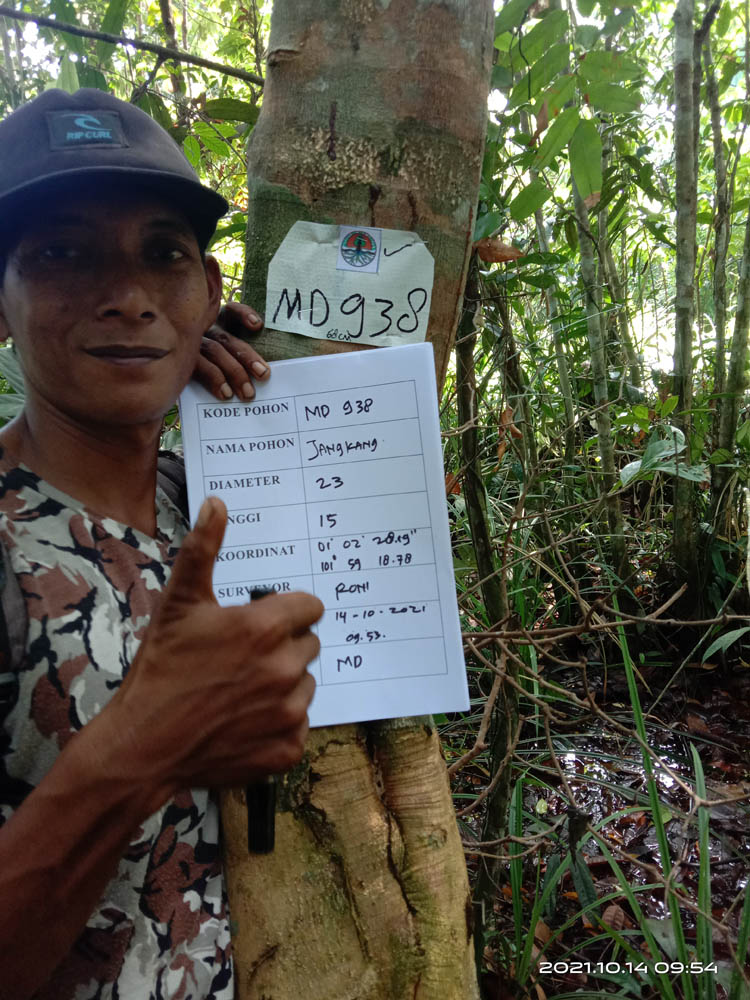 RIP CURL
MD 938
68 cm
KODE POHON MD 938
NAMA POHON JANGKANG
DIAMETER 23
NGGI 15
KOORDINAT 01° 02' 28.19"
101° 59 18.78
SURVEYOR RONI
14-10-2021
09.53.
MD
2021.10.14 09:54